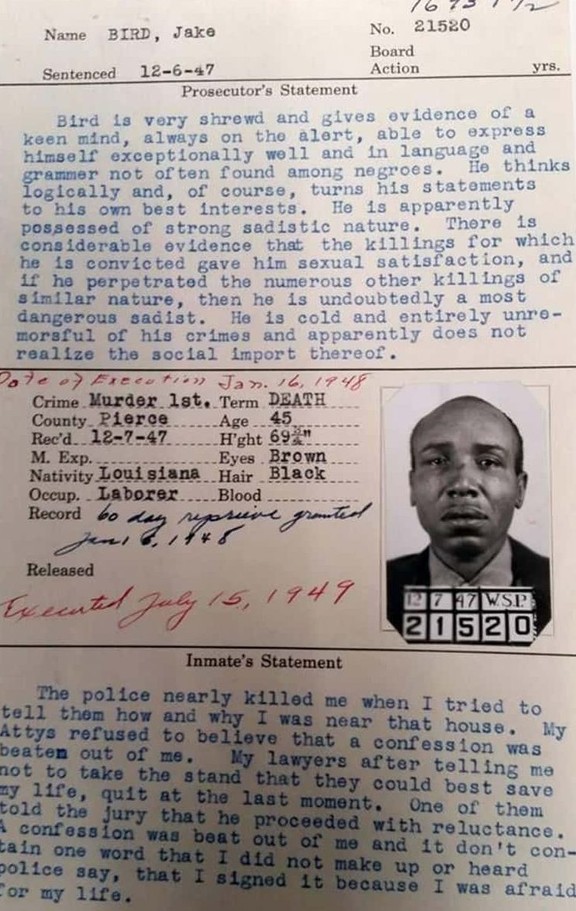 Name BIRD, Jake No. 21520
Board
Sentenced 12-6-47 Action yrs.
Prosecutor's Statement
Bird is very shrewd and gives evidence of a
keen mind, always on the alert, able to express
himself exceptionally well and in language and
grammer not often found among negroes. He thinks
logically and, of course, turns his statements
to his own best interests. He is apparently
possessed of strong sadistic nature. There is
considerable evidence that the killings for which
he is convicted gave him sexual satisfaction, and
if he perpetrated the numerous other killings of
similar nature, then he is undoubtedly a most
dangerous sadist. He is cold and entirely unre-
morsful of his crimes and apparently does not
realize the social import thereof.
Date of Execution Jan. 16, 1948
Crime Murder 1st. Term DEATH
County Pierce Age 45
Rec'd. 12-7-47 H'ght 69¾"
M. Exp. Eyes Brown
Nativity Louisiana Hair Black
Occup. Laborer Blood
Record 60 day reprieve granted
Jan. 6, 1948
Released
Executed July 15, 1949
12 7 47 W.S.P.
21520
Inmate's Statement
The police nearly killed me when I tried to
tell them how and why I was near that house. My
Attys refused to believe that a confession was
beaten out of me. My lawyers after telling me
not to take the stand that they could best save
my life, quit at the last moment. One of them
told the jury that he proceeded with reluctance.
A confession was beat out of me and it don't con-
tain one word that I did not make up or heard
police say, that I signed it because I was afraid
for my life.